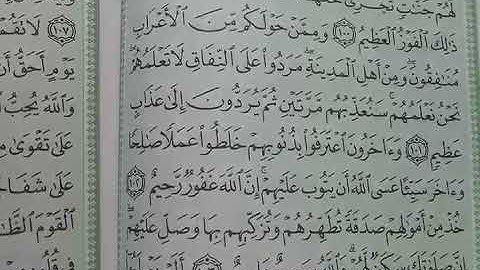 لَهُمْ جَنَّٰتٍ تَجْرِى
ذَٰلِكَ ٱلْفَوْزُ ٱلْعَظِيمُ ١٠٠ وَمِمَّنْ حَوْلَكُم مِّنَ ٱلْأَعْرَابِ
مُنَٰفِقُونَ ۖ وَمِنْ أَهْلِ ٱلْمَدِينَةِ ۖ مَرَدُوا۟ عَلَى ٱلنِّفَاقِ لَا تَعْلَمُهُمْ ۖ
نَحْنُ نَعْلَمُهُمْ ۚ سَنُعَذِّبُهُم مَّرَّتَيْنِ ثُمَّ يُرَدُّونَ إِلَىٰ عَذَابٍ
عَظِيمٍ ١٠١ وَءَاخَرُونَ ٱعْتَرَفُوا۟ بِذُنُوبِهِمْ خَلَطُوا۟ عَمَلًا صَٰلِحًا
وَءَاخَرَ سَيِّئًا عَسَى ٱللَّهُ أَن يَتُوبَ عَلَيْهِمْ ۚ إِنَّ ٱللَّهَ غَفُورٌ رَّحِيمٌ ١٠٢
خُذْ مِنْ أَمْوَٰلِهِمْ صَدَقَةً تُطَهِّرُهُمْ وَتُزَكِّيهِم بِهَا وَصَلِّ عَلَيْهِمْ ۖ
١٠٧ لَا تَقُمْ
يَوْمٍ أَحَقُّ أَن
وَٱللَّهُ يُحِبُّ
عَلَىٰ تَقْوَىٰ مِ
عَلَىٰ شَفَا
ٱلْقَوْمَ ٱلظَّ
فِى قُلُو